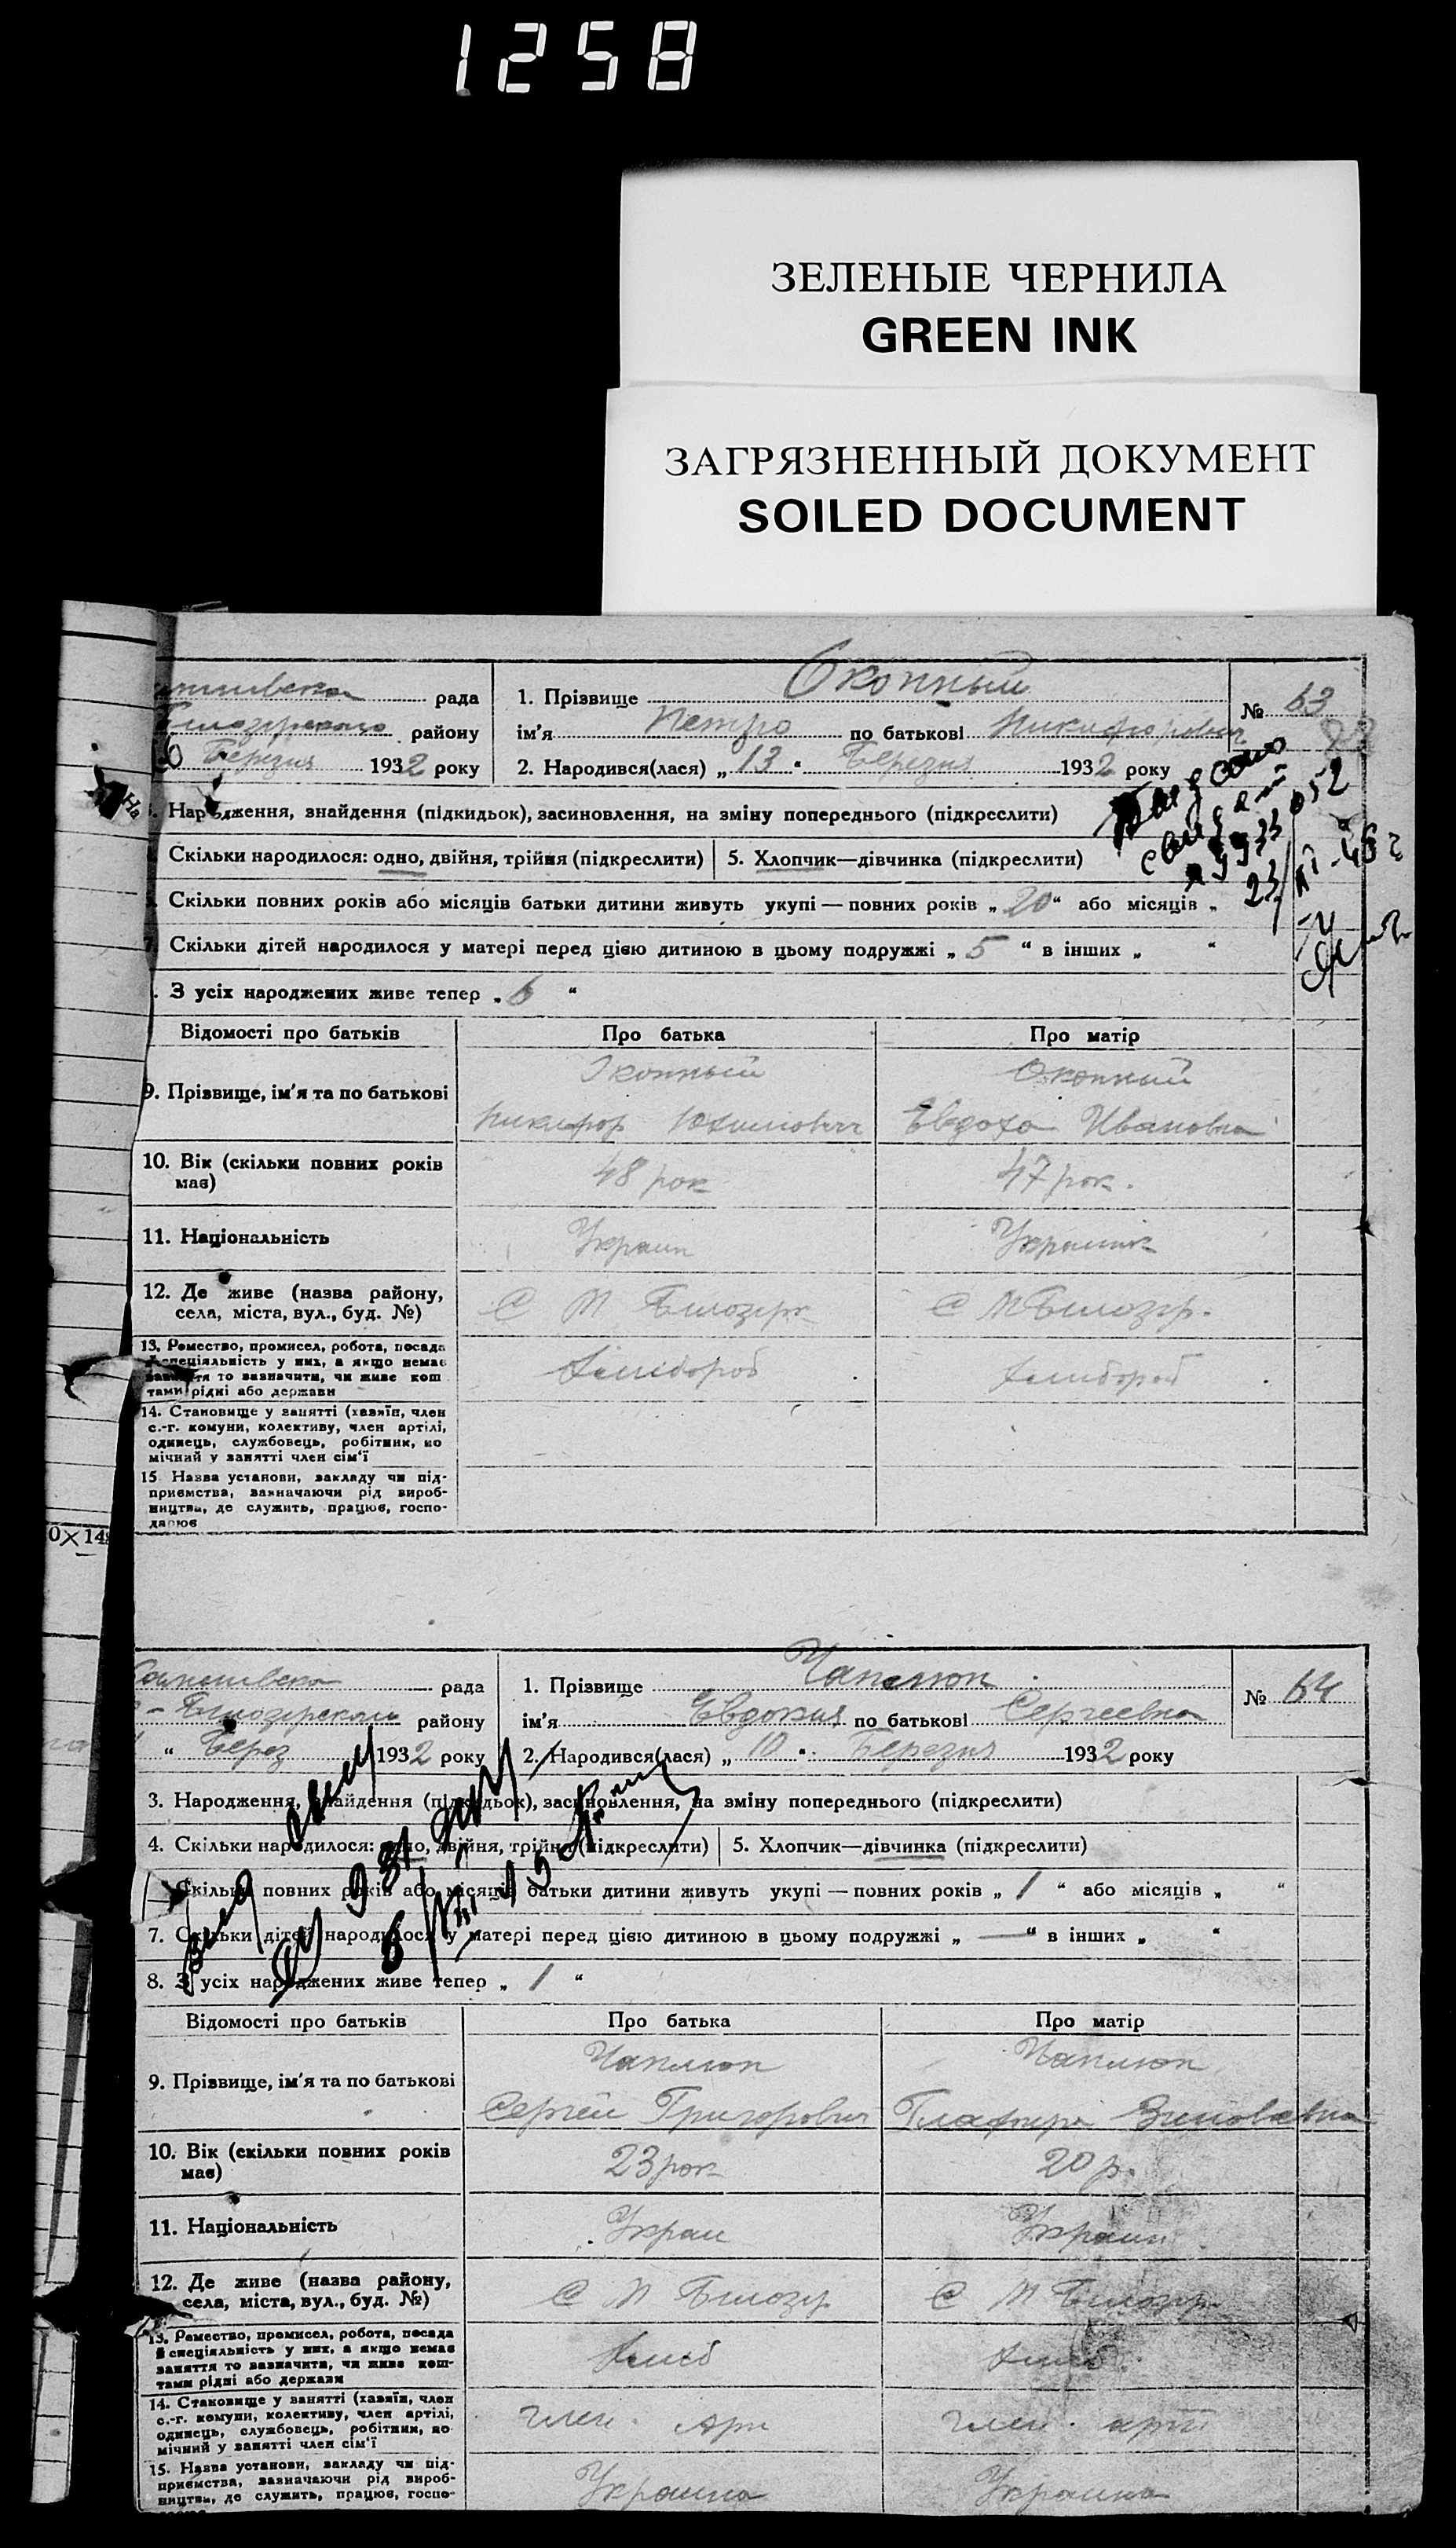 1258
ЗЕЛЕНЫЕ ЧЕРНИЛА
GREEN INK
ЗАГРЯЗНЕННЫЙ ДОКУМЕНТ
SOILED DOCUMENT
рада
району
Березня 1932 року
1. Прізвище Околный
ім'я Петро по батькові Никифорович
2. Народився(лася) „ 13 " Березня 1932 року
№ 63
Народження, знайдення (підкидьок), засиновлення, на зміну попереднього (підкреслити)
Скільки народилося: одно, двійня, трійня (підкреслити)
5. Хлопчик—дівчинка (підкреслити)
Скільки повних років або місяців батьки дитини живуть укупі — повних років „ 20 “ або місяців „
Скільки дітей народилося у матері перед цією дитиною в цьому подружжі „ 5 “ в інших „ “
З усіх народжених живе тепер „ 6 “
Відомості про батьків
Про батька
Про матір
9. Прізвище, ім'я та по батькові
Никифор
Евдоха Ивановна
10. Вік (скільки повних років має)
48 рок
47 рок.
11. Національність
Украин
12. Де живе (назва району,
села, міста, вул., буд. №)
С М Билозірк
С М Билозір.
13. Ремество, промисел, робота, посада
спеціяльність у них, а якщо немає
заняття то вазначити, чи живе кош
тами рідні або держави
Хлибороб
Хлибороб
14. Становище у занятті (хазяїн, член
с.-г. комуни, колективу, член артілі,
одинець, службовець, робітник, по
мічний у занятті член сім'ї
15 Назва установи, закладу чи під-
приємства, вазначаючи рід вироб-
ництва, де служить, працює, госпо-
дарює
0×148
рада
району
“ Берез 1932 року
1. Прізвище Чаплюк
ім'я Евдокия по батькові Сергеевна
2. Народився(лася) „ 10 " Березня 1932 року
№ 64
3. Народження, знайдення (підкидьок), засиновлення, на зміну попереднього (підкреслити)
4. Скільки народилося: одно, двійня, трійня (підкреслити)
5. Хлопчик—дівчинка (підкреслити)
Скільки повних років або місяців батьки дитини живуть укупі — повних років „ 1 “ або місяців „ “
7. Скільки дітей народилося у матері перед цією дитиною в цьому подружжі „ — “ в інших „ “
8. З усіх народжених живе тепер „ 1 “
Відомості про батьків
Про батька
Про матір
9. Прізвище, ім'я та по батькові
Чаплюк
Чаплюк
Сергей Григорович
Глафира Зиновевна
10. Вік (скільки повних років має)
23 рок
20 р.
11. Національність
Украи
Украин
12. Де живе (назва району,
села, міста, вул., буд. №)
С М Билозір
С М Билозір
13. Ремество, промисел, робота, посада
й спеціяльність у них, а якщо немає
заняття то вазначити, чи живе кош-
тами рідні або держави
Хлиб
Хлиб
14. Становище у занятті (хазяїн, член
с.-г. комуни, колективу, член артілі,
одинець, службовець, робітник, по
мічний у занятті член сім'ї
член. Арт
член. арті
15. Назва установи, закладу чи під-
приємства, вазначаючи рід вироб-
ництва, де служить, працює, госпо-
Украина
Украина